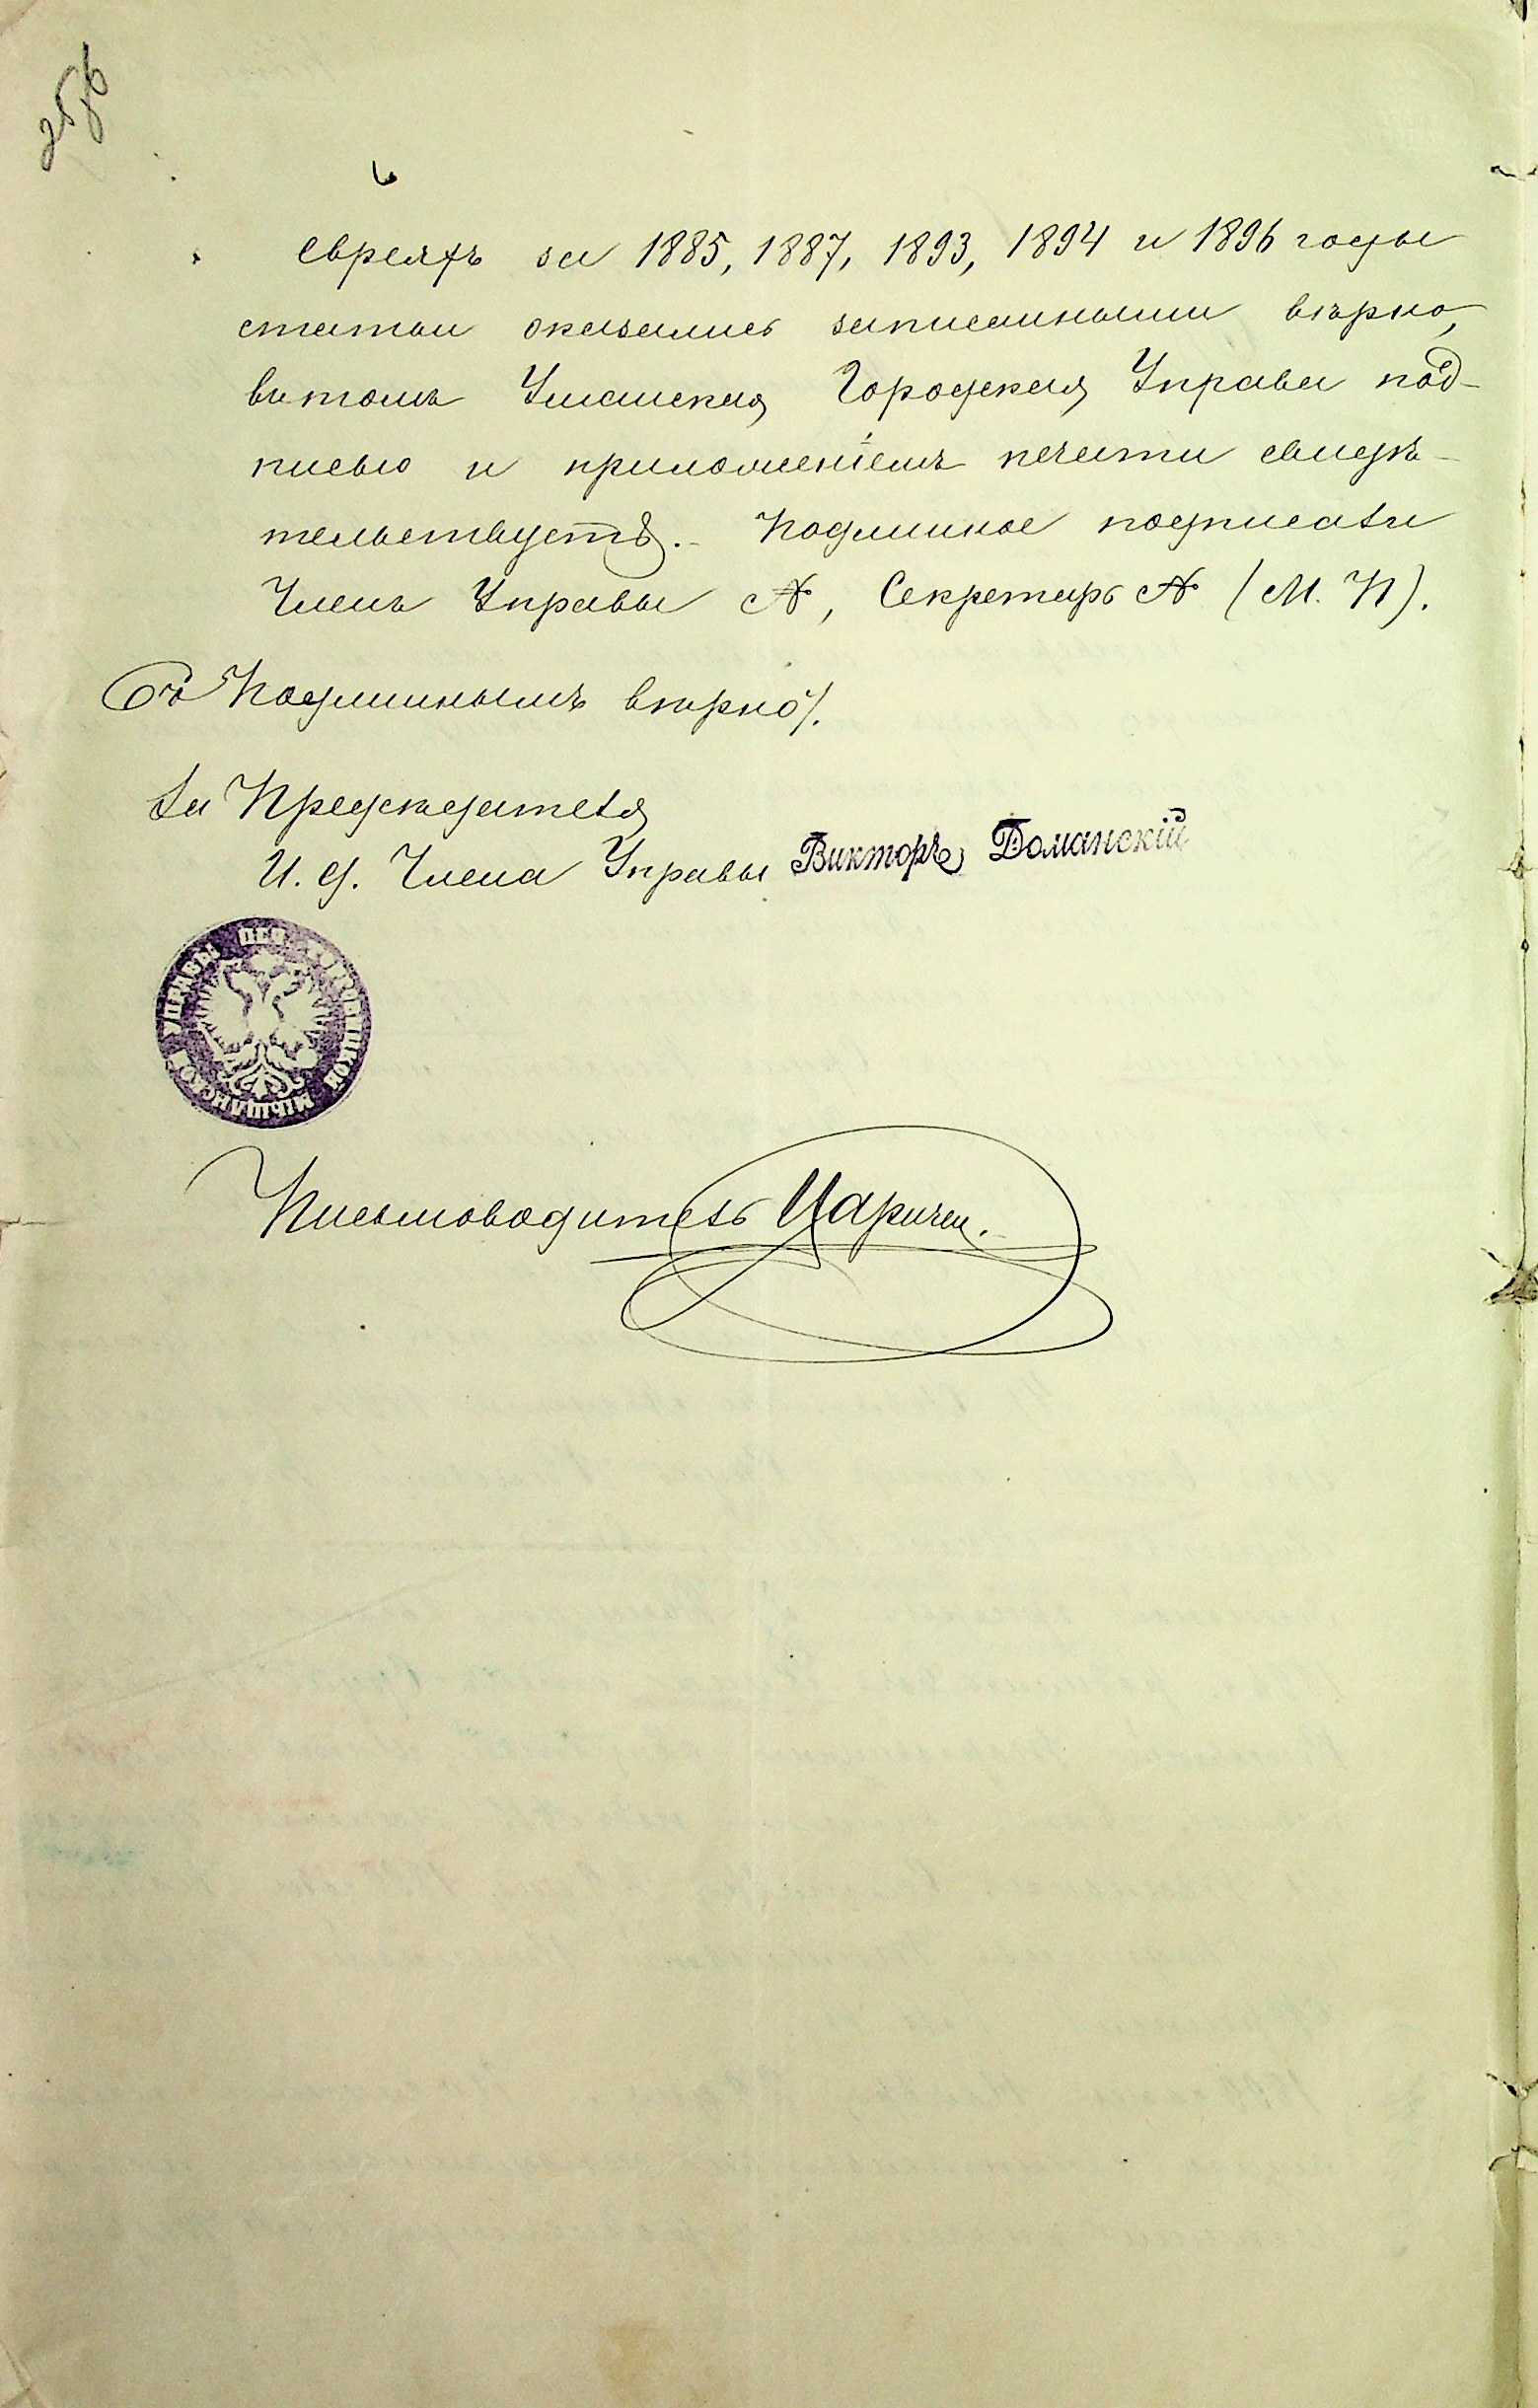 евреяхъ за 1885, 1887, 1893, 1894 и 1896 годы
статьи оказались записанными вѣрно,
въ томъ Уманская Городская Управа под-
писью и приложеніемъ печати свидѣ-
тельствуетъ. - Подлинное подписали
Членъ Управы N, Секретарь N (М. П).
Съ подлиннымъ вѣрно/.
За Предсѣдателя
И. д. Члена Управы Викторъ Доманскій
УПРАВЫ МѢЩАНСКОЙ
Письмоводитель